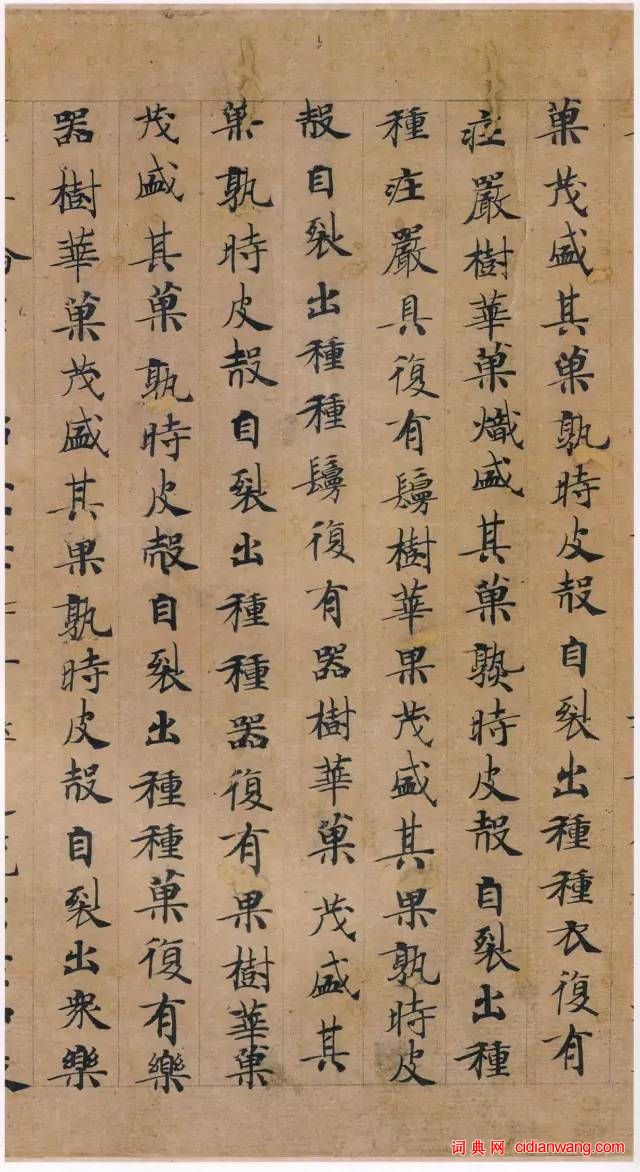 菓茂盛其菓孰時皮殼自裂出種種衣復有
庄嚴樹華菓熾盛其菓熟時皮殼自裂出種
種庄嚴具復有鬘樹華果茂盛其果孰時皮
殼自裂出種種鬘復有器樹華菓茂盛其
菓孰時皮殼自裂出種種器復有果樹華菓
茂盛其菓孰時皮殼自裂出種種菓復有樂
器樹華菓茂盛其果孰時皮殼自裂出衆樂
词典网 cidianwang.com